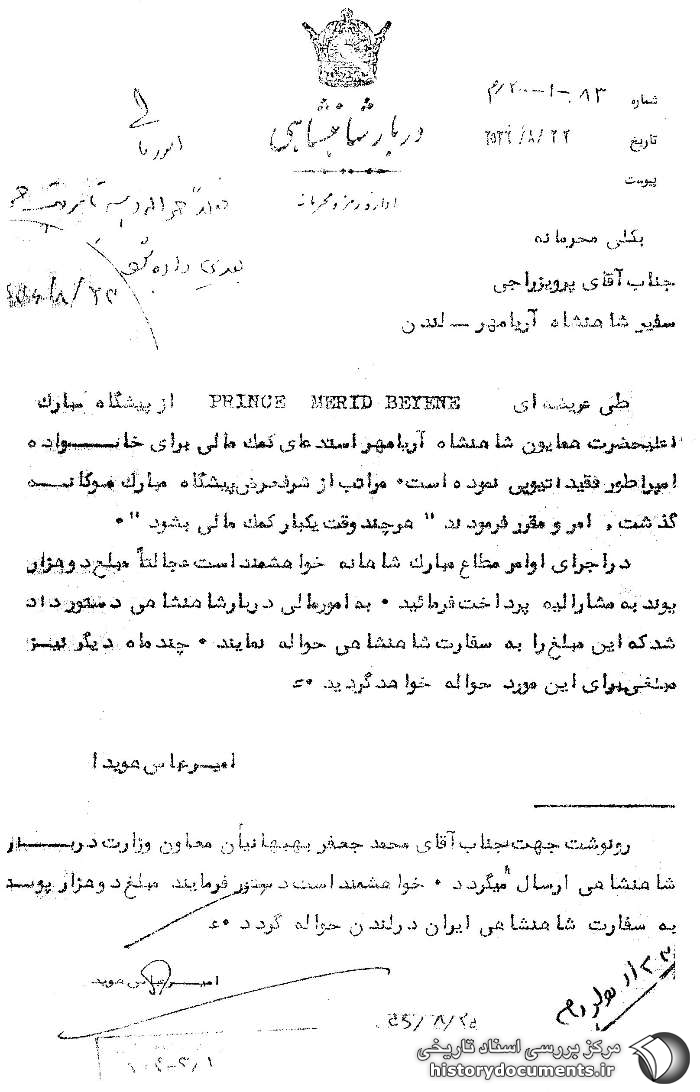 شماره ۱۰۰۸۳-۲۰۰/م
تاریخ ۲۵۳۶/۸/۲۲
پیوست
دربار شاهنشاهی
اداره رمز و محرمانه
امور مالی
بکلی محرمانه
جناب آقای پرویز راجی
سفیر شاهنشاه آریامهر – لندن
طی عریضه ای PRINCE MERID BEYENE از پیشگاه مبارک
اعلیحضرت همایون شاهنشاه آریامهر استدعای کمک مالی برای خانواده
امپراطور فقید اتیوپی نموده است. مراتب از شرفعرض پیشگاه مبارک ملوکانه
گذشت, امر و مقرر فرمودند " هر چند وقت یکبار کمک مالی بشود ".
در اجرای اوامر مطاع مبارک شاهانه خواهشمند است عجالتاً مبلغ دوهزار
پوند به مشارالیه پرداخت فرمائید. به امور مالی دربار شاهنشاهی دستور داده
شد که این مبلغ را به سفارت شاهنشاهی حواله نمایند. چند ماه دیگر نیز
مبلغی برای این مورد حواله خواهد گردید.
امیرعباس هویدا
رونوشت جهت جناب آقای محمد جعفر بهبهانیان معاون وزارت دربار
شاهنشاهی ارسال میگردد. خواهشمند است دستور فرمایند مبلغ دوهزار پوند
به سفارت شاهنشاهی ایران در لندن حواله گردد.
امیرعباس هویدا
مرکز بررسی اسناد تاریخی
historydocuments.ir